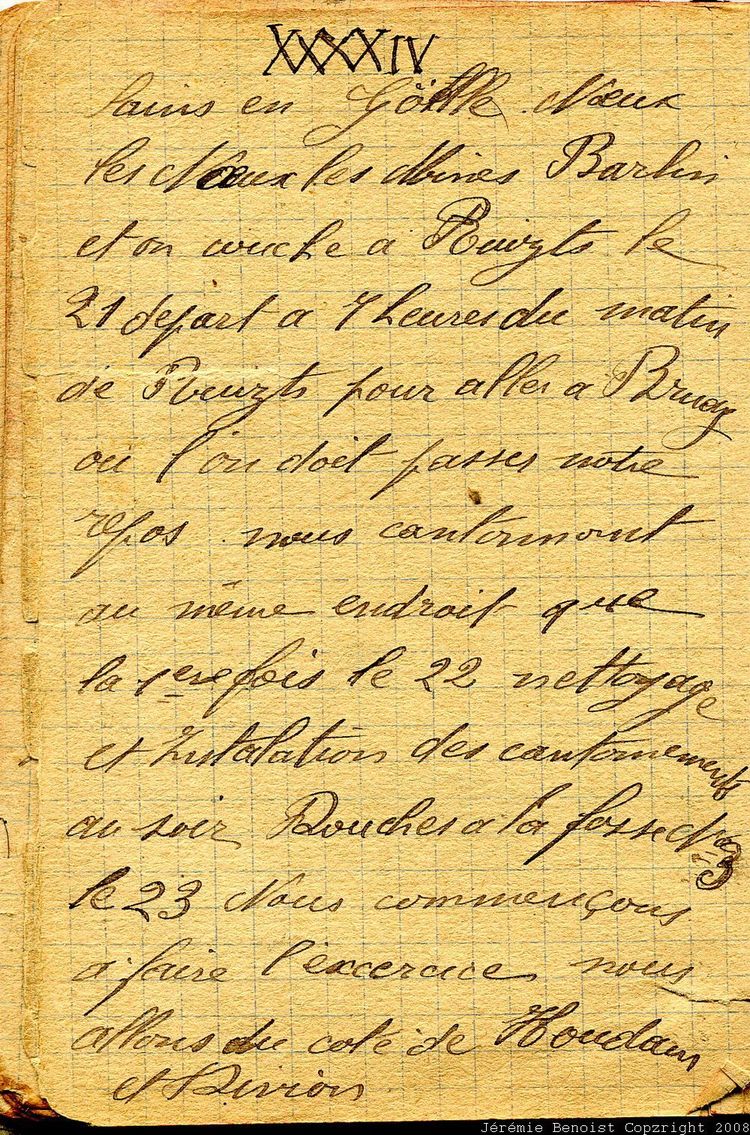 XXXXIV
Sains en Göhlle Nœux
les Nœux les Mines Barlin
et on couche a Ruizts le
21 depart a 7 heures du matin
de Ruizts pour aller a Bruay
ou l'on doit passer notre
repos nous cantonnont
au même endroit que
la 1ere fois le 22 nettoyage
et Instalation des cantonnements
au soir Douches a la fosse No 3
le 23 Nous commençons
a faire l'excercice nous
allons du coté de Houdain
et Divion
Jérémie Benoist Copzright 2008